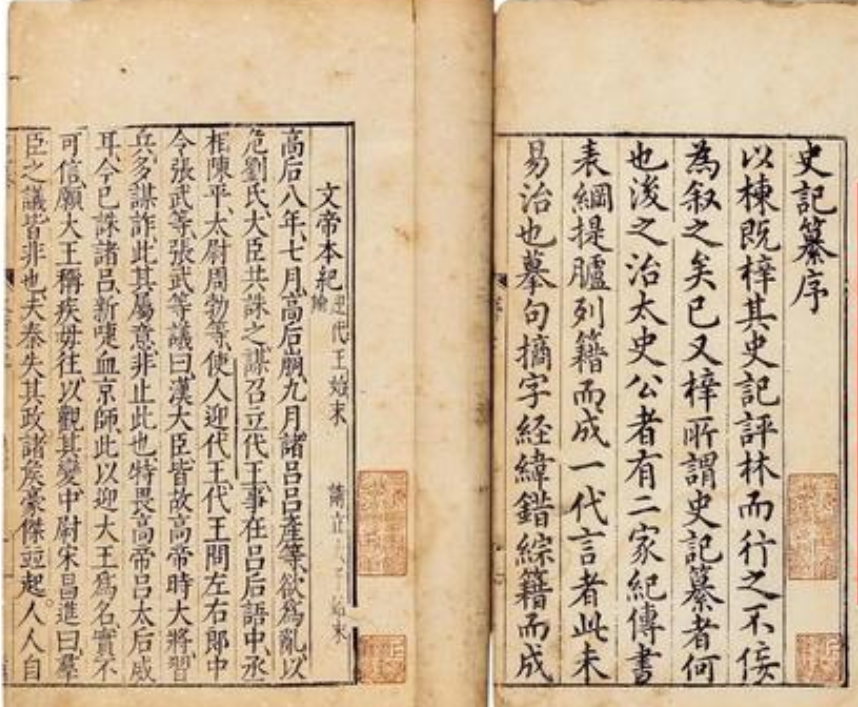 史記纂序
以棟既梓其史記評林而行之不佞
為叙之矣已又梓所謂史記纂者何
也後之治太史公者有二家紀傳書
表綱提臚列籍而成一代言者此未
易治也摹句摘字経緯錯綜籍而成
文帝本紀
迎代王始末
請立 始末
高后八年、七月、高后崩、九月諸呂呂產等、欲爲亂、以
危劉氏、大臣共誅之、謀召立代王、事在呂后語中、丞
相陳平、太尉周勃等、使人迎代王、代王問左右郎中
令張武等、張武等議曰、漢大臣皆故高帝時大將、習
兵、多謀詐、此其屬意、非止此也、特畏高帝呂太后威
耳、今已誅諸呂、新啑血京師、此以迎大王爲名、實不
可信、願大王稱疾毋往、以觀其變、中尉宋昌進曰、羣
臣之議皆非也、夫秦失其政、諸侯豪傑竝起。人人自